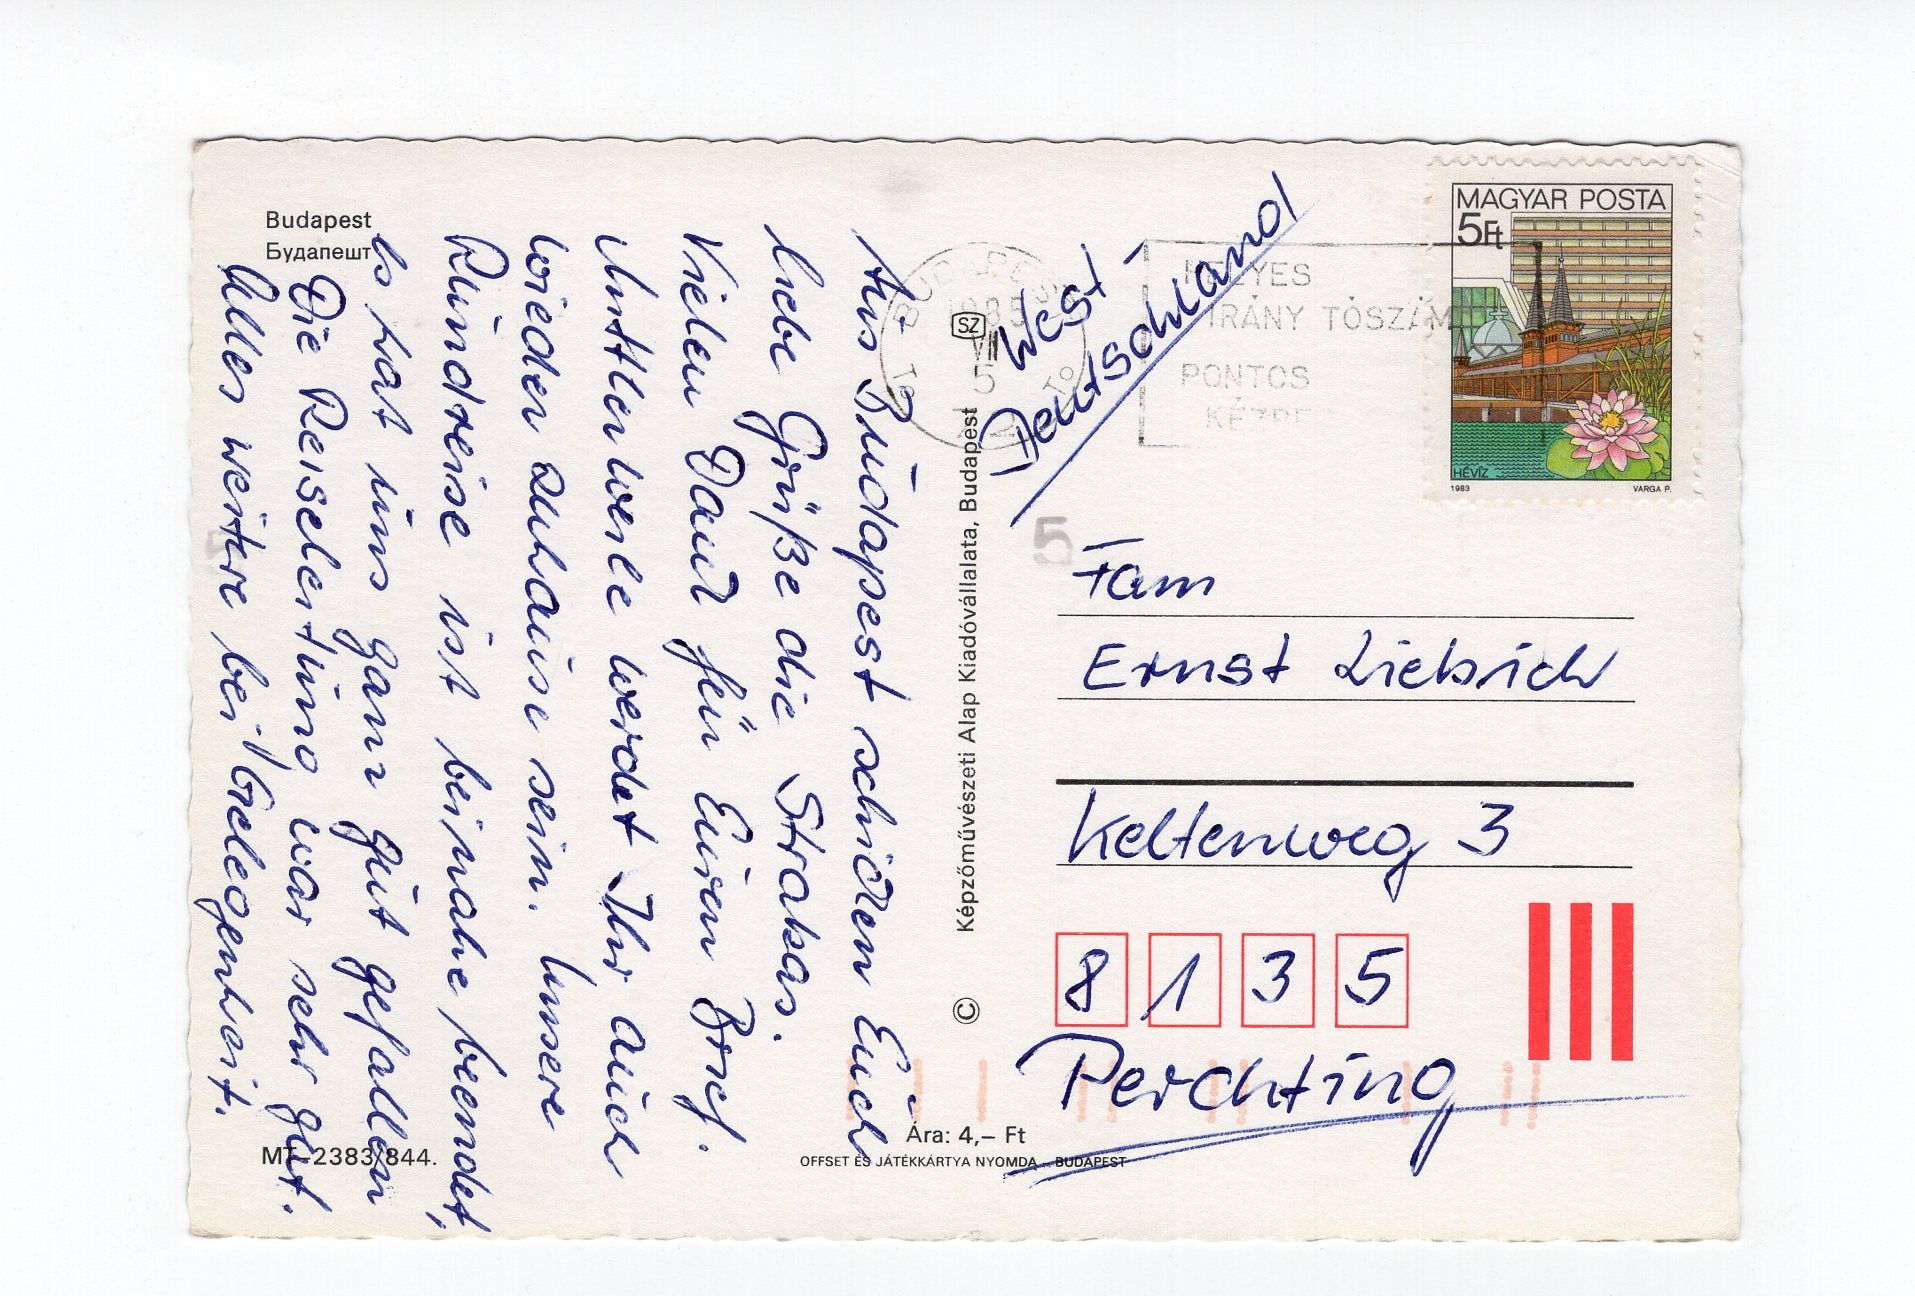 Budapest
Будапешт
Aus Budapest schicken Euch
liebe Grüße die Strakas.
Vielen Dank für Euren Brief.
Mittlerweile werdet Ihr auch
wieder zuhause sein. Unsere
Rundreise ist beinahe beendet,
es hat uns ganz gut gefallen
Die Reiseleitung war sehr gut.
Alles weitere bei Gelegenheit.
MT 2383/844.
Képzőművészeti Alap Kiadóvállalata, Budapest
©
SZ
Ára: 4,– Ft
OFFSET ÉS JÁTÉKKÁRTYA NYOMDA - BUDAPEST
BUDAPEST
1985
VII
5
HELYES
IRÁNYÍTÓSZÁM
PONTOS
KÉZBE
MAGYAR POSTA
5Ft
HÉVÍZ
1983
VARGA P.
West
Deutschland
5
Fam
Ernst Liebrich
Keltenweg 3
8 1 3 5
Perchting